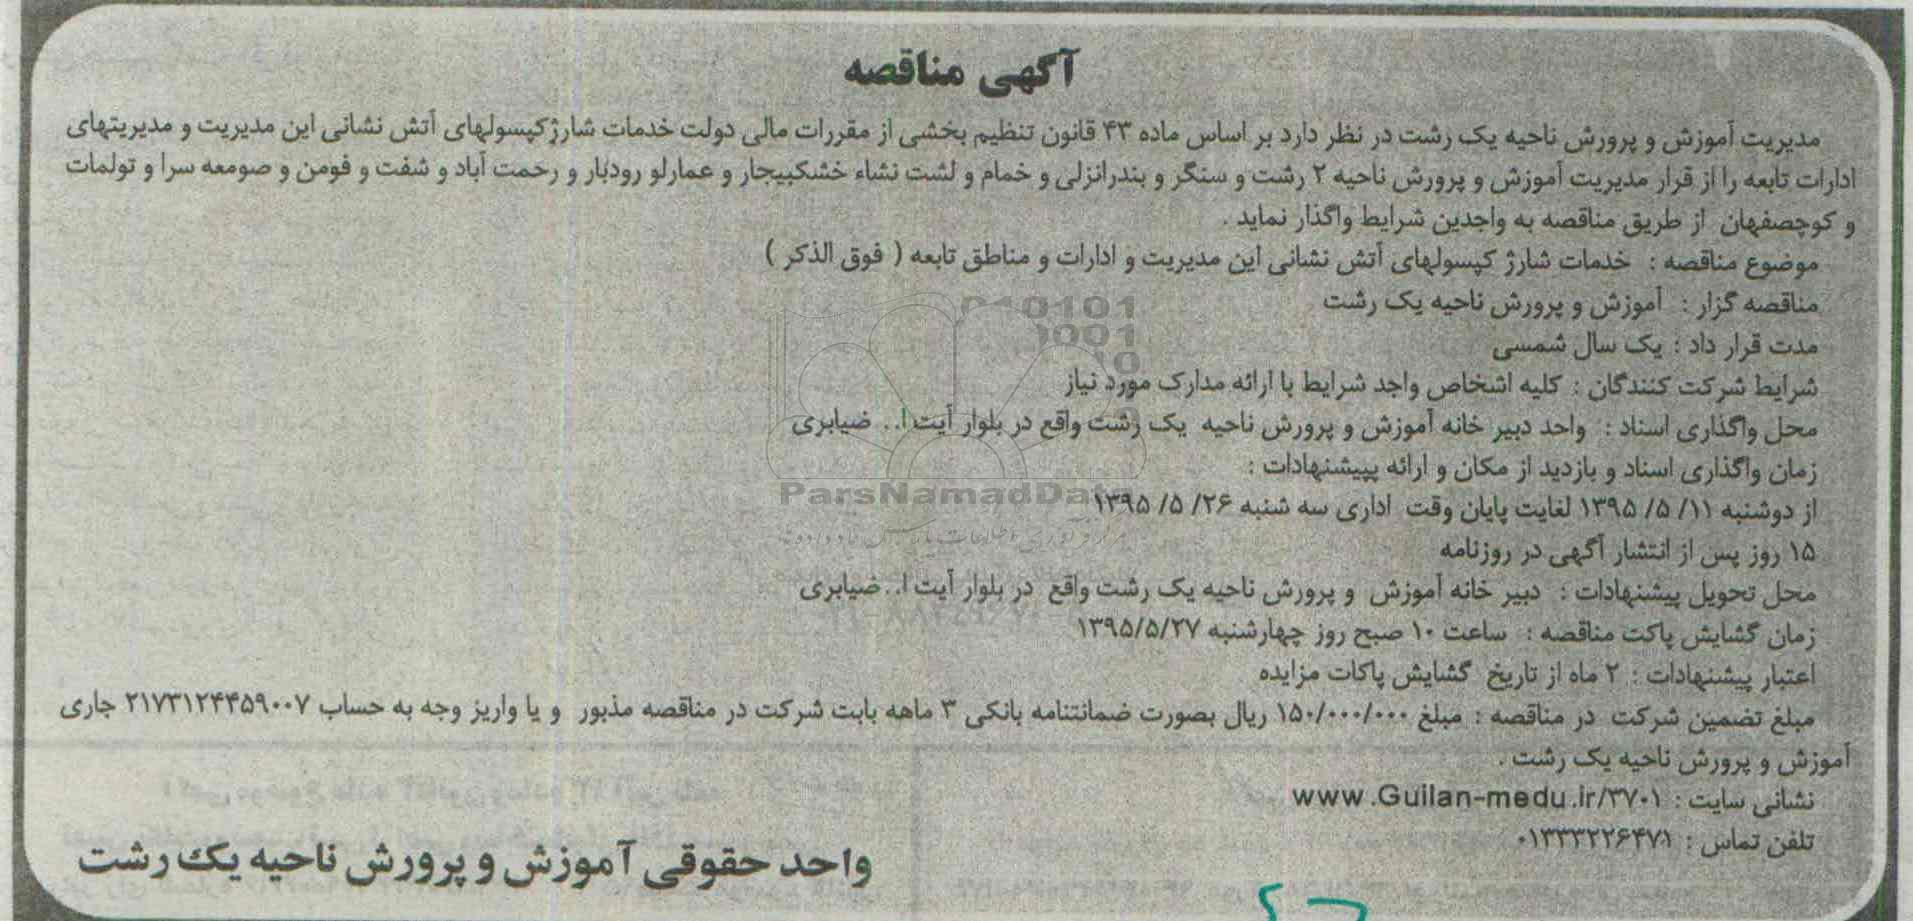 آگهی مناقصه
مدیریت آموزش و پرورش ناحیه یک رشت در نظر دارد بر اساس ماده ۴۳ قانون تنظیم بخشی از مقررات مالی دولت خدمات شارژکپسولهای آتش نشانی این مدیریت و مدیریتهای
ادارات تابعه را از قرار مدیریت آموزش و پرورش ناحیه ۲ رشت و سنگر و بندرانزلی و خمام و لشت نشاء خشکبیجار و عمارلو رودبار و رحمت آباد و شفت و فومن و صومعه سرا و تولمات
و کوچصفهان از طریق مناقصه به واجدین شرایط واگذار نماید .
موضوع مناقصه : خدمات شارژ کپسولهای آتش نشانی این مدیریت و ادارات و مناطق تابعه ( فوق الذکر )
مناقصه گزار : آموزش و پرورش ناحیه یک رشت
مدت قرار داد : یک سال شمسی
شرایط شرکت کنندگان : کلیه اشخاص واجد شرایط با ارائه مدارک مورد نیاز
محل واگذاری اسناد : واحد دبیر خانه آموزش و پرورش ناحیه یک رشت واقع در بلوار آیت ا.. ضیابری
زمان واگذاری اسناد و بازدید از مکان و ارائه پیپشنهادات :
از دوشنبه ۱۱/ ۵/ ۱۳۹۵ لغایت پایان وقت اداری سه شنبه ۲۶/ ۵/ ۱۳۹۵
۱۵ روز پس از انتشار آگهی در روزنامه
محل تحویل پیشنهادات : دبیر خانه آموزش و پرورش ناحیه یک رشت واقع در بلوار آیت ا..ضیابری
زمان گشایش پاکت مناقصه : ساعت ۱۰ صبح روز چهارشنبه ۱۳۹۵/۵/۲۷
اعتبار پیشنهادات : ۲ ماه از تاریخ گشایش پاکات مزایده
مبلغ تضمین شرکت در مناقصه : مبلغ ۱۵۰/۰۰۰/۰۰۰ ریال بصورت ضمانتنامه بانکی ۳ ماهه بابت شرکت در مناقصه مذبور و یا واریز وجه به حساب ۲۱۷۳۱۲۴۴۵۹۰۰۷ جاری
آموزش و پرورش ناحیه یک رشت .
نشانی سایت : www.Guilan-medu.ir/۳۷۰۱
تلفن تماس : ۰۱۳۳۳۲۲۶۴۷۱
واحد حقوقی آموزش و پرورش ناحیه یک رشت
ParsNamadData